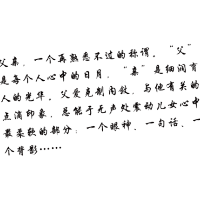 父亲，一个再熟悉不过的称谓。“父”
是每个人心中的日月，“亲”是细润有
人的光华。父爱克制内敛，与他有关的
点滴印象，总能于无声处震动儿女心中
最柔软的部分：一个眼神，一句话，一
个背影……